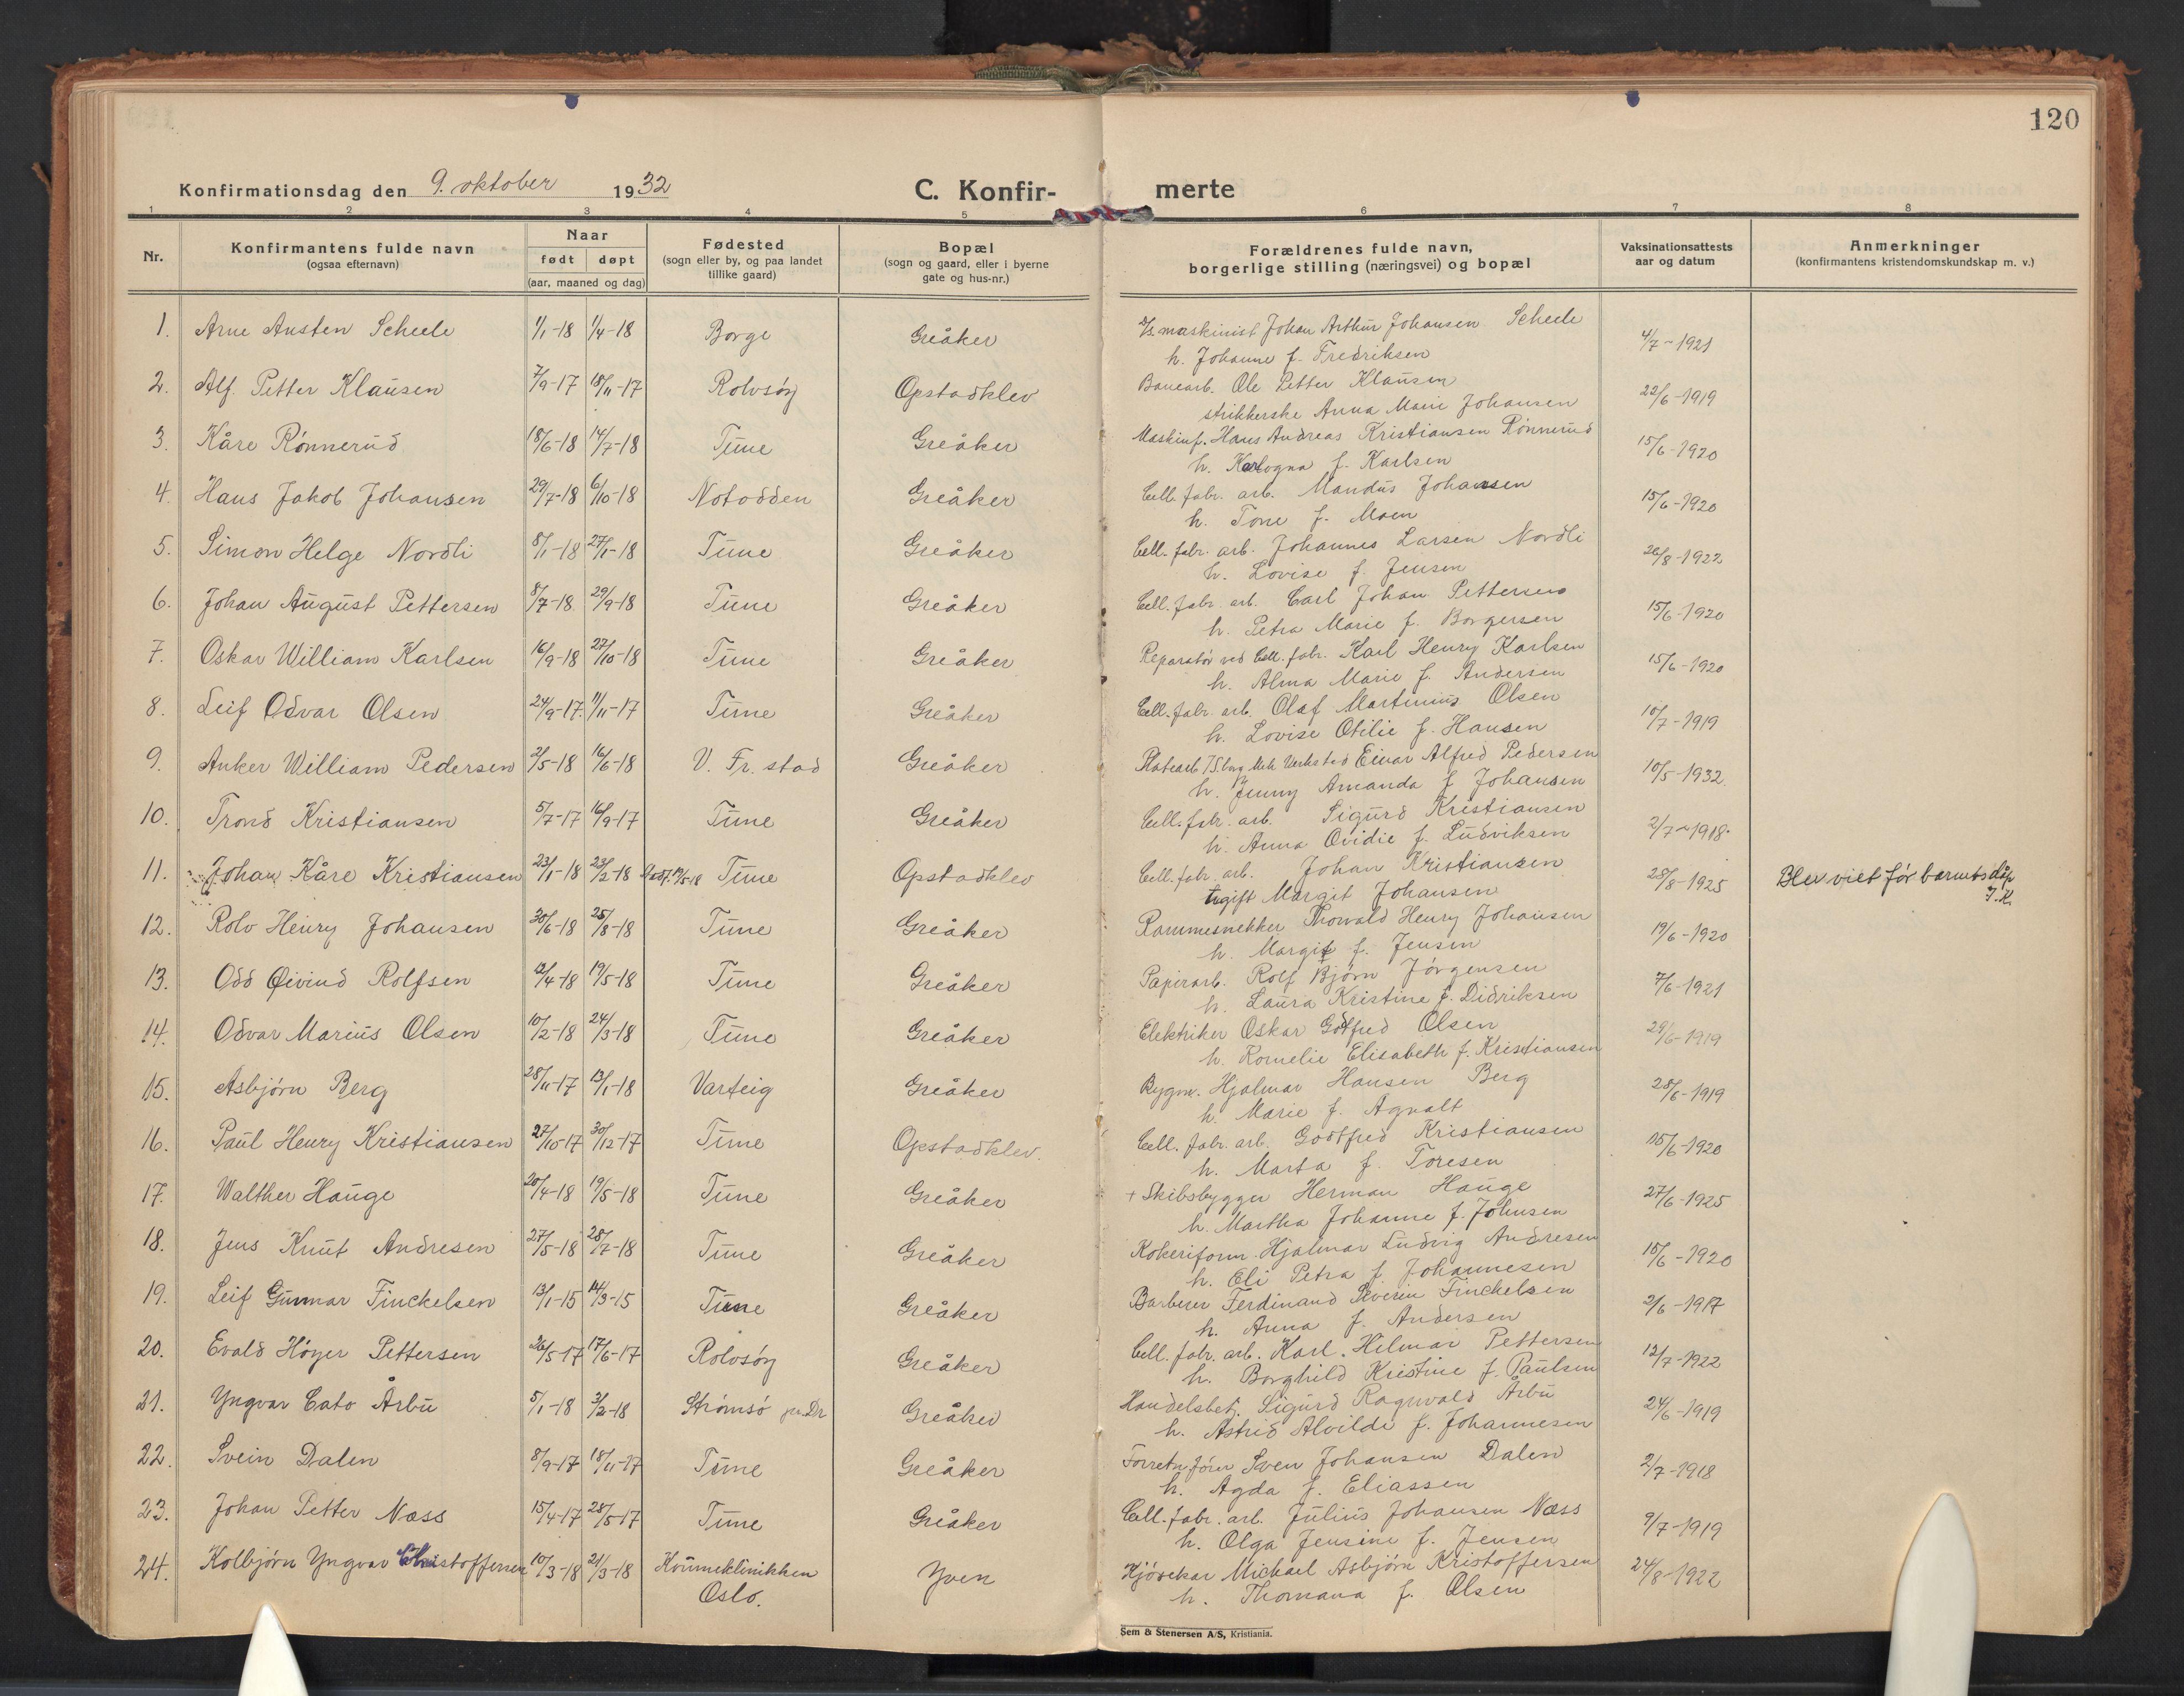 120
Konfirmationsdag den 9. oktober 1932
C. Konfir- merte
1 2 3 4 5 6 7 8
Nr.
Konfirmantens fulde navn
(ogsaa efternavn)
Naar
født døpt
(aar, maaned og dag)
Fødested
(sogn eller by, og paa landet
tillike gaard)
Bopæl
(sogn og gaard, eller i byerne
gate og hus-nr.)
Forældrenes fulde navn,
borgerlige stilling (næringsvei) og bopæl
Vaksinationsattests
aar og datum
Anmerkninger
(konfirmantens kristendomskundskap m. v.)
1. Arne Austen Scheele 1/1-18 1/4-18 Borge Greåker maskinist Johan Arthur Johansen Scheele 4/7-1921
h. Johanne f. Fredriksen
2. Alf Petter Klausen 7/9-17 18/11-17 Rolvsøy Opstadklev Banearb. Ole Petter Klausen 22/6-1919
strikkerske Anna Marie Johansen
3. Kåre Rønnerud 18/6-18 14/7-18 Tune Greåker Maskinf. Hans Andreas Kristiansen Rønnerud 15/6-1920
h. Karlogna f. Karlsen
4. Hans Jakob Johansen 29/7-18 6/10-18 Notodden Greåker Cell. fabr. arb. Mandus Johansen 15/6-1920
h. Tone f. Moen
5. Simon Helge Nordli 8/1-18 27/1-18 Tune Greåker Cell. fabr. arb. Johannes Larsen Nordli 26/8-1922
h. Lovise f. Jensen
6. Johan August Pettersen 8/7-18 29/9-18 Tune Greåker Cell. fabr. arb. Carl Johan Pettersen 15/6-1920
h. Petra Marie f. Borgersen
7. Oskar William Karlsen 16/9-18 27/10-18 Tune Greåker Reparatør ved Cell. fabr. Karl Henry Karlsen 15/6-1920
h. Alma Marie f. Andersen
8. Leif Odvar Olsen 24/9-17. 11/11-17 Tune Greåker Cell. fabr. arb. Olaf Martinius Olsen 10/7-1919
h. Lovise Otilie f. Hansen
9. Anker William Pedersen 2/5-18 16/6-18 V. Fr. stad Greåker Platearb. Mek. Verksted Einar Alfred Pedersen 10/5-1932.
h. Jenny Amanda f. Johansen
10. Trond Kristiansen 5/7-17 16/9-17 Tune Greåker Cell. fabr. arb. Sigurd Kristiansen 2/7-1918.
h. Anna Ovidie f. Ludviksen
11. Johan Kåre Kristiansen 23/1-18 23/2-18 Tune Opstadklev Cell. fabr. arb. Johan Kristiansen 28/8-1925 Blev viet før barnets dåp
ugift Margit Johansen J.K.
12. Rolv Henry Johansen 30/6-18 25/8-18 Tune Greåker Rammesnekker Thorvald Henry Johansen 19/6-1920
h. Margit f. Jensen
13. Odd Øivind Rolfsen 12/4-18 19/5-18 Tune Greåker Papirarb. Rolf Bjørn Jørgensen 7/6-1921
h. Laura Kristine f. Didriksen
14. Odvar Marius Olsen 10/2-18 24/3-18 Tune Greåker Elektriker Oskar Godtfred Olsen 29/6-1919
h. Kornelie Elisabeth f. Kristiansen
15. Asbjørn Berg 28/11-17 13/1-18 Varteig Greåker Bygm. Hjalmar Hansen Berg 28/6-1919
h. Marie f. Agnalt
16. Paul Henry Kristiansen 27/10-17 30/12-17 Tune Opstadklev. Cell. fabr. arb. Godtfred Kristiansen 15/6-1920
h. Marta f. Toresen
17. Walther Hauge 20/4-18 19/5-18 Tune Greåker + Skibsbygger Herman Hauge 27/6-1925
h. Martha Johanne f. Johnsen
18. Jens Knut Andresen 27/5-18 28/7-18 Tune Greåker Kokeriform. Hjalmar Ludvig Andresen 15/6-1920
h. Eli Petra f. Johannesen
19. Leif Gunnar Finckelsen 13/1-15 14/3-15 Tune Greåker Barberer Ferdinand Severin Finckelsen 2/6-1917
h. Anna f. Andersen
20. Evald Høyer Pettersen 26/5-17 17/6-17 Rolvsøy Greåker Cell. fabr. arb. Karl Hilmar Pettersen 12/7-1922
h. Borghild Kristine f. Paulsen
21. Yngvar Cato Årbu 5/1-18 3/2-18 Strømsø pr. Dr. Greåker Handelsbetj. Sigurd Ragnvald Årbu 24/6-1919
h. Astrid Alvilde f. Johannesen
22. Svein Dalen 8/9-17 18/11-17 Tune Greåker Forretn.fører Sven Johansen Dalen 2/7-1918
h. Agda f. Eliassen
23. Johan Petter Næss 15/4-17 28/5-17 Tune Greåker Cell. fabr. arb. Julius Johansen Næss 9/7-1919
h. Olga Jensine f. Jensen
24. Kolbjørn Yngvar Christoffersen 10/3-18 21/3-18 Kvinneklinikken Yven Michael Asbjørn Kristoffersen 24/8-1922
Oslo. h. Thomana f. Olsen
Sem & Stenersen A/S, Kristiania.